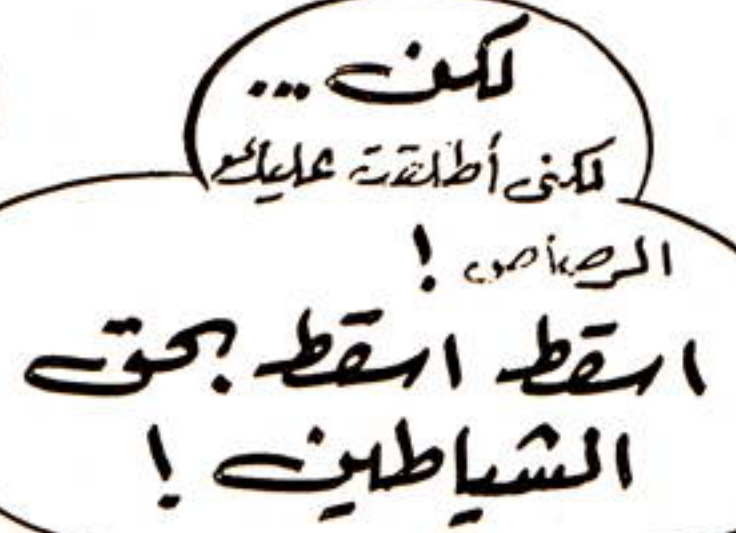 لكن...
لكنى أطلقت عليك
الرصاص !
اسقط اسقط بحق
الشياطين !